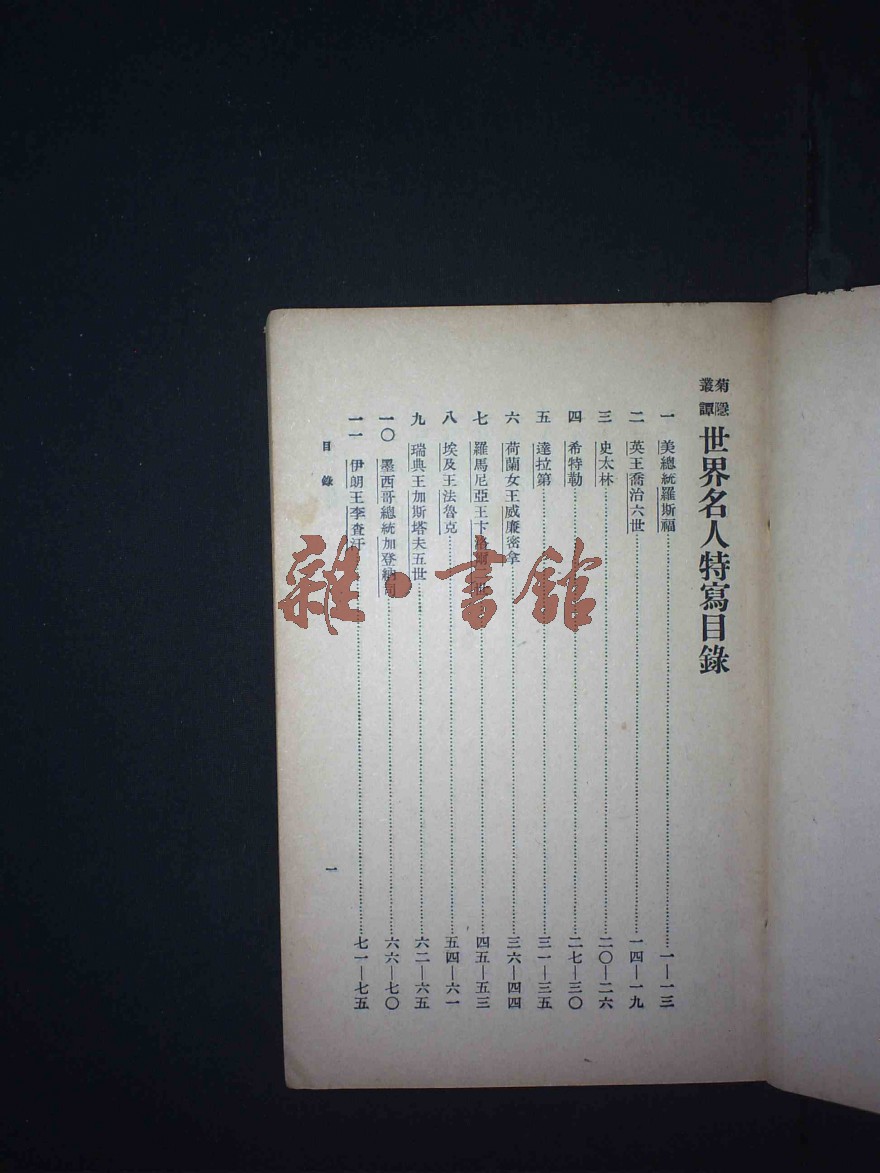 菊隱叢譚
世界名人特寫目錄
一 美總統羅斯福 一—一三
二 英王喬治六世 一四—一九
三 史太林 二〇—二六
四 希特勒 二七—三〇
五 達拉第 三一—三五
六 荷蘭女王威廉密拿 三六—四四
七 羅馬尼亞王卞洛爾二世 四五—五三
八 埃及王法魯克 五四—六一
九 瑞典王加斯塔夫五世 六二—六五
一〇 墨西哥總統加登納 六六—七〇
一一 伊朗王李查汗 七一—七五
目錄
一
雜·書館